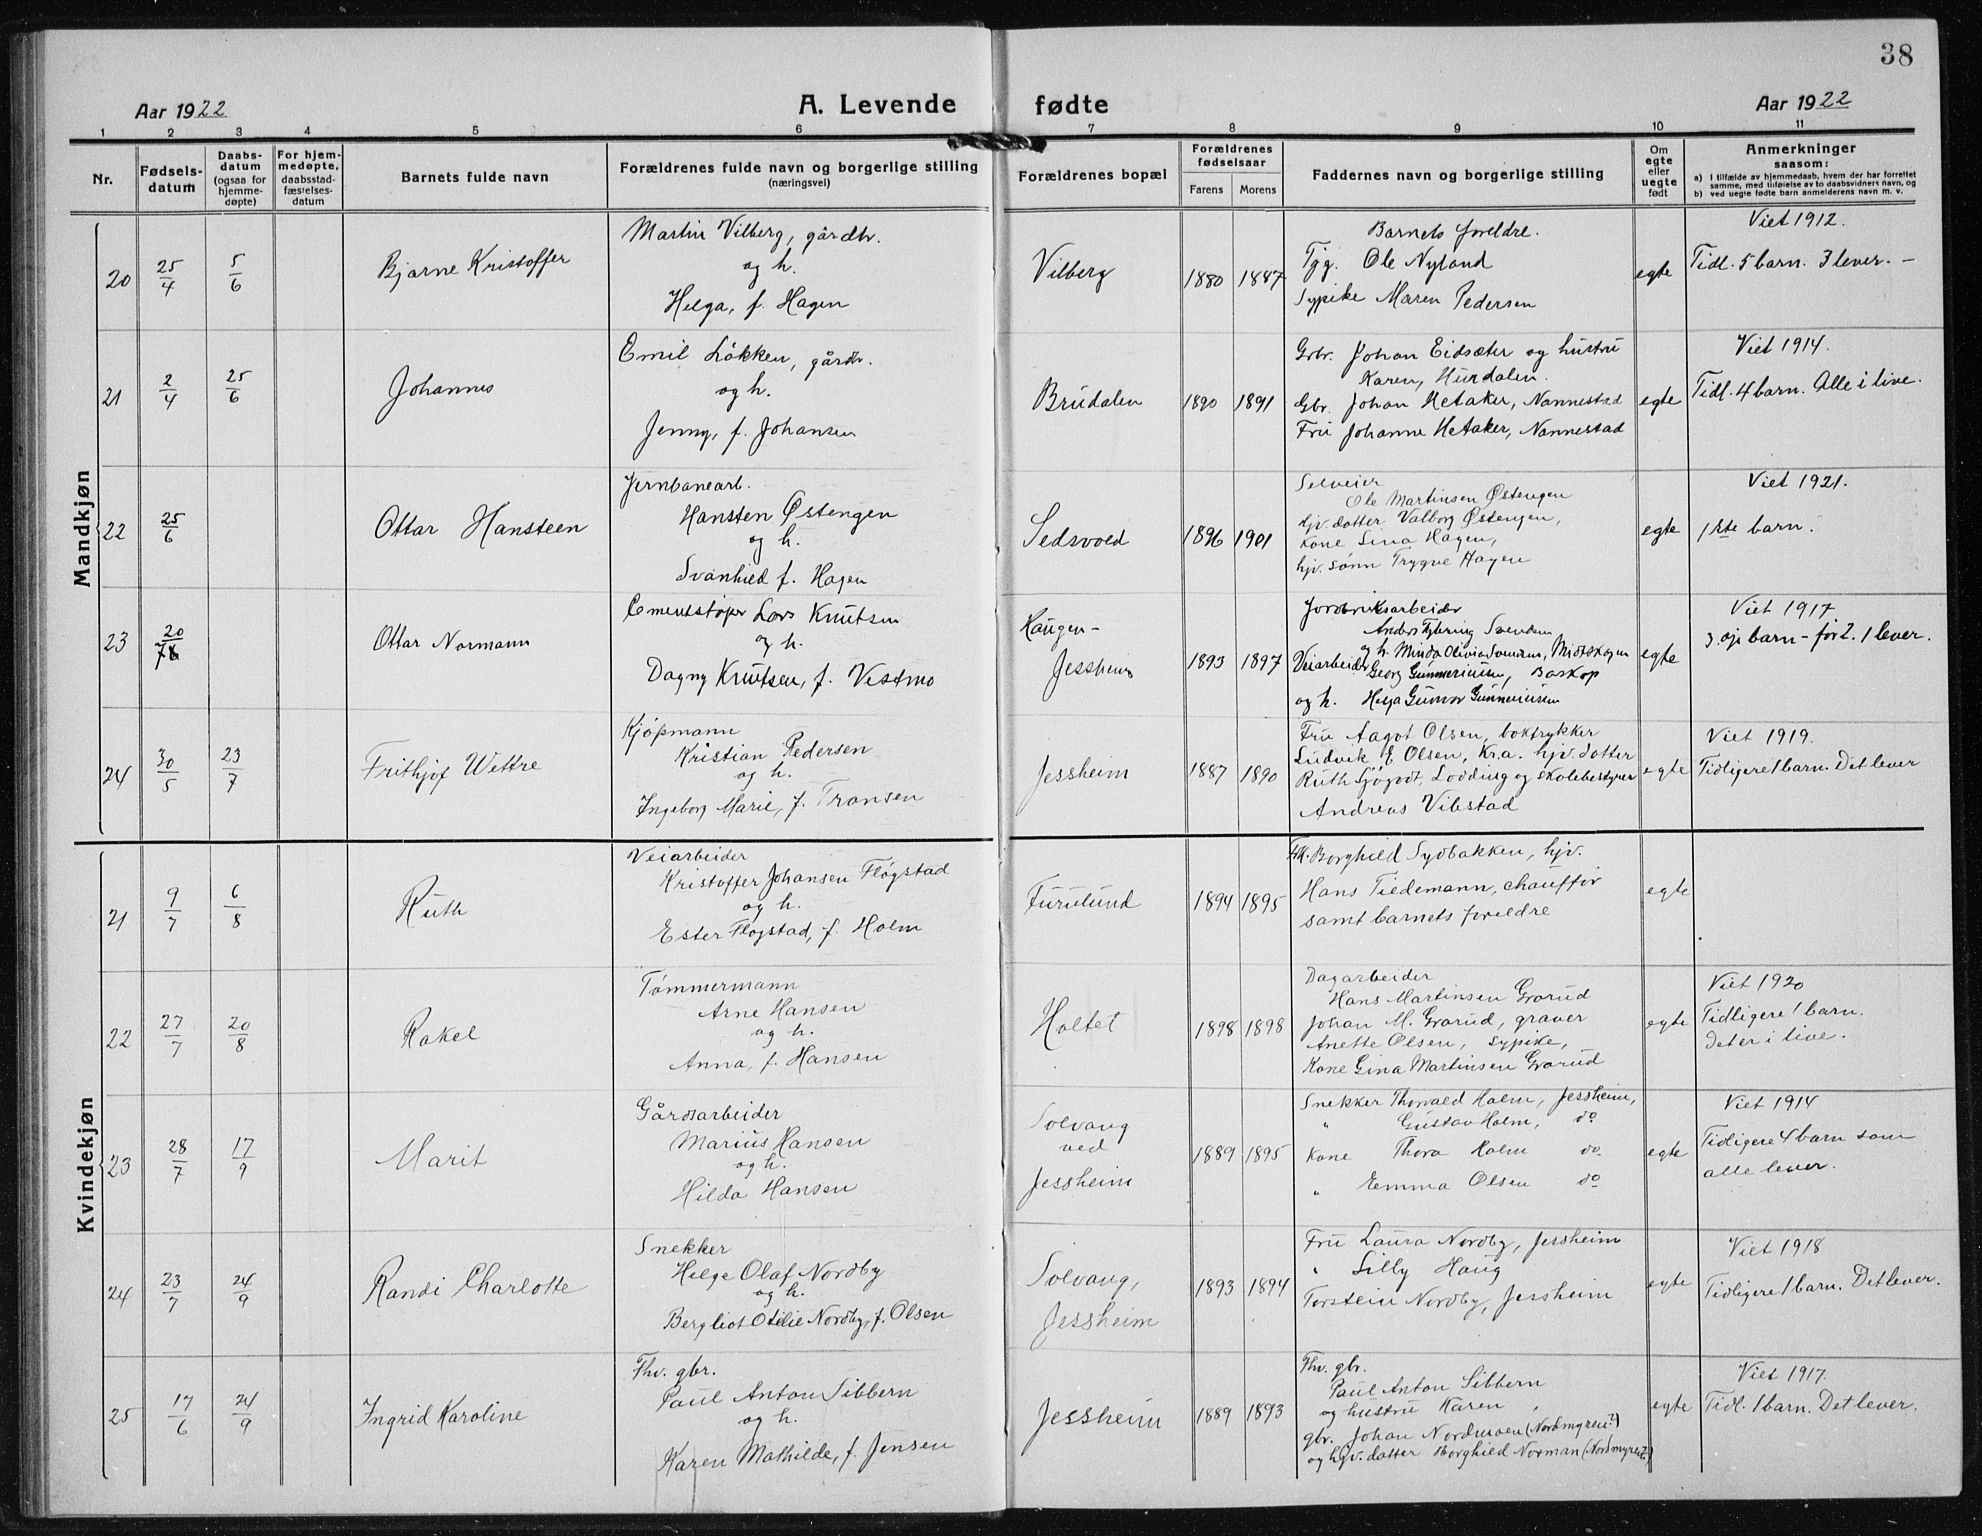 38
Aar 1922 A. Levende fødte Aar 1922
1 2 3 4 5 6 7 8 9 10 11
Nr.
Fødsels-
datum
Daabs-
datum
(ogsaa for
hjemme-
døpte)
For hjem-
medøpte,
daabsstad-
fæstelses-
datum
Barnets fulde navn
Forældrenes fulde navn og borgerlige stilling
(næringsvei)
Forældrenes bopæl
Forældrenes
fødselsaar
Farens Morens
Faddernes navn og borgerlige stilling
Om
egte
eller
uegte
født
Anmerkninger
saasom:
a) I tilfælde av hjemmedaab, hvem der har forrettet
samme, med tilføielse av to daabsvidners navn, og
b) ved uegte fødte barn anmelderens navn m. v.
Mandkjøn
20 25/4 5/6 Bjarne Kristoffer
Martin Vilberg, gårdbr.
og h.
Helga, f. Hagen
Vilberg 1880 1887
Barnets foreldre.
Tjg. Ole Nyland
Sypike Maren Pedersen
egte
Viet 1912.
Tidl. 5 barn. 3 lever. -
21 2/4 25/6 Johannes
Emil Løkken, gårdbr.
og h.
Jenny, f. Johansen
Brudalen 1890 1891
Grbr. Johan Eidsæter og hustru
Karen, Hurdalen.
Gbr. Johan Hetaker, Nannestad
Fru Johanne Hetaker, Nannestad
egte
Viet 1914.
Tidl. 4 barn. Alle i live.
22 25/6 Ottar Hansteen
Jernbanearb.
Hansten Østengen
og h.
Svanhild f. Hagen
Sedsvold 1896 1901
Selveier
Ole Martinsen Østengen
hjv. datter Valborg Østengen,
Kone Lina Hagen,
hjv. sønn Trygve Hagen
egte
Viet 1921.
1ste barn.
23 20/7 Ottar Normann
Cementstøper Lars Knutsen
og h.
Dagny Knutsen, f. Vestmo
Haugen -
Jessheim
1893 1897
Jordbruksarbeider
Anders Svendsen
og h. Minda Olivia Svendsen, Midtskogen
Veiarbeider Georg Gunneriusen, Baskop
og h. Helga Gunvor Gunneriusen
egte
Viet 1917
3. barn - før 2. 1 lever.
24 30/5 23/7 Frithjof Wettre
Kjøpmann
Kristian Pedersen
og h.
Ingeborg Marie, f. Fransen
Jessheim 1887 1890
Fru Aagot Olsen, boktrykker
Ludvik E Olsen, Kra. hjv. datter
Ruth og skolebestyrer
Andreas Vibstad
egte
Viet 1919.
Tidligere 1 barn. Det lever
Kvindekjøn
21 9/7 6/8 Ruth
Veiarbeider
Kristoffer Johansen Fløgstad
og h.
Ester Fløgstad, f. Holm
Furulund 1894 1895
Frk. Borghild Sydbakken, hjv.
Hans Tiedemann, chauffør
samt barnets foreldre
egte
22 27/7 20/8 Rakel
Tømmermann
Arne Hansen
og h.
Anna, f. Hansen
Holtet 1898 1898
Dagarbeider
Hans Martinsen Grorud
Johan M. Grorud, graver
Anette Olsen, sypike,
Kone Gina Martinsen Grorud
egte
Viet 1920
Tidligere 1 barn.
det er i live.
23 28/7 17/9 Marit
Gårdsarbeider
Marius Hansen
og h.
Hilda Hansen
Solvang
ved
Jessheim
1889 1895
Snekker Thorvald Holm, Jessheim,
" Gustav Holm, do
Kone Thora Holm do
" Emma Olsen do
egte
Viet 1914
Tidligere 4 barn som
alle lever.
24 23/7 24/9 Randi Charlotte
Snekker
Helge Olaf Nordby
og h.
Bergliot Otelie Nordby, f. Olsen
Solvang,
Jessheim
1893 1894
Fru Laura Nordby, Jessheim
" Lilly Haug
Torstein Nordby, Jessheim
egte
Viet 1918
Tidligere 1 barn. Det lever.
25 17/6 24/9 Ingrid Karoline
Fhv. gbr.
Paul Anton Sibbern
og h.
Karen Mathilde, f. Jensen
Jessheim 1889 1893
Fhv. gbr.
Paul Anton Sibbern
og hustru Karen
gbr. Johan Nordmoen (Nordmyren?)
og hjv. datter Borghild Norman (Nordmyren?)
egte
Viet 1917.
Tidl. 1 barn. Det lever.